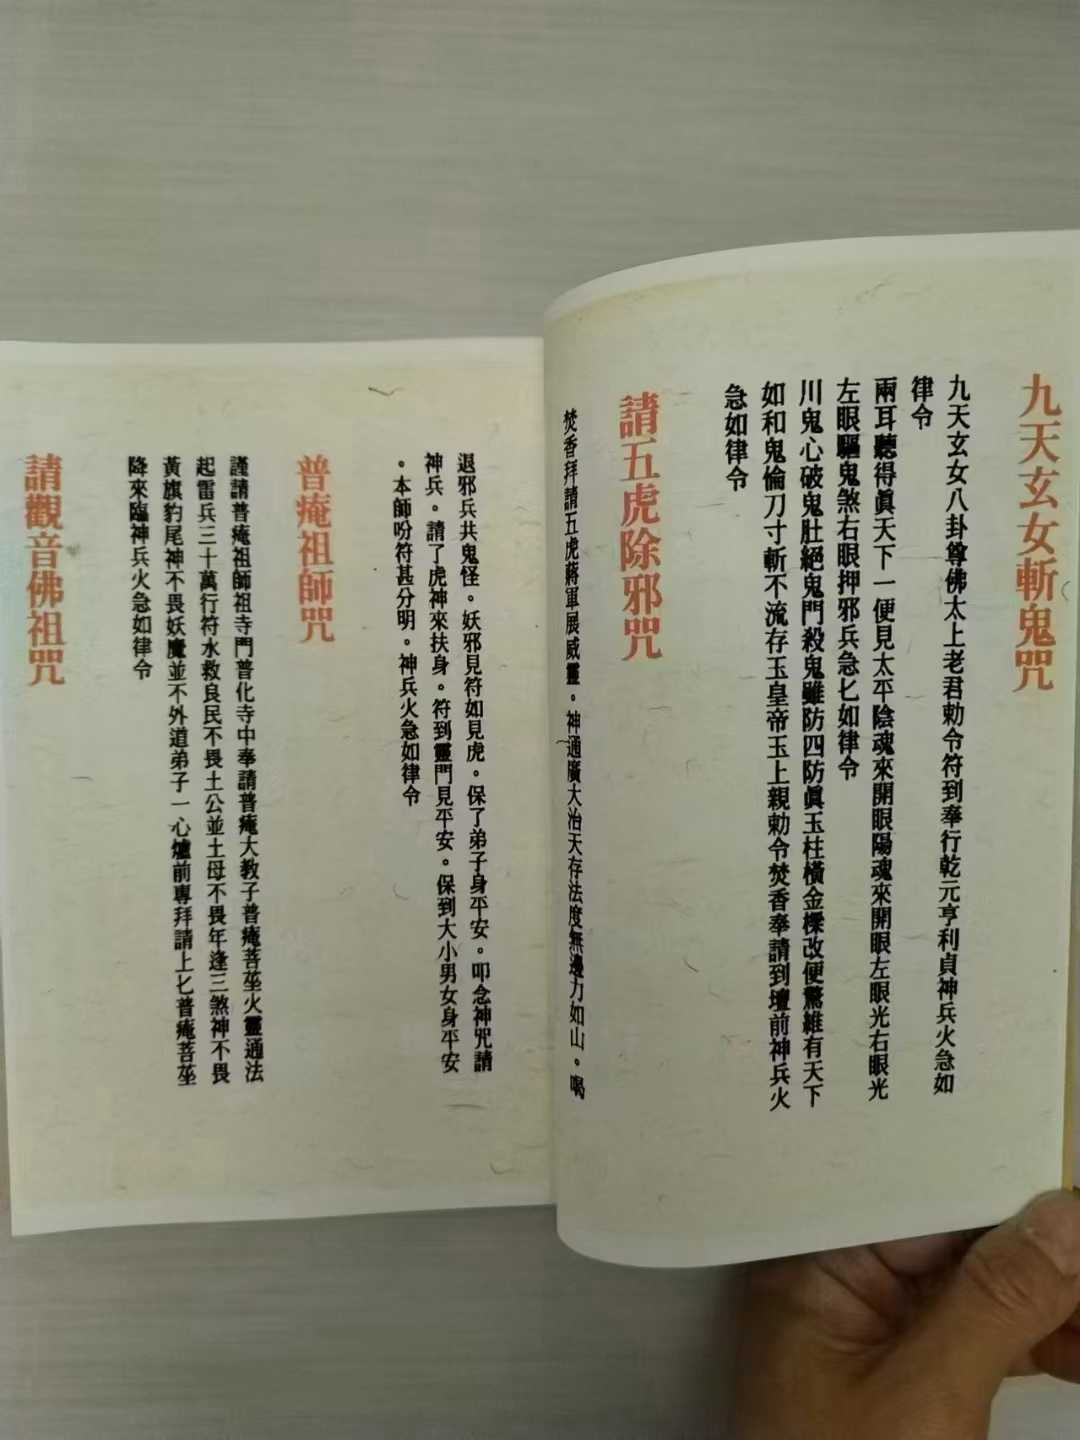 九天玄女斬鬼咒
九天玄女八卦尊佛太上老君勅令符到奉行乾元亨利貞神兵火急如
律令
兩耳聽得眞天下一便見太平陰魂來開眼陽魂來開眼左眼光右眼光
左眼驅鬼煞右眼押邪兵急匕如律令
川鬼心破鬼肚絕鬼門殺鬼雖防四防眞玉柱橫金樑改便驚維有天下
如和鬼倫刀寸斬不流存玉皇帝玉上親勅令焚香奉請到壇前神兵火
急如律令
請五虎除邪咒
焚香拜請五虎蔣軍展威靈。神通廣大治天存法度無邊力如山。喝
退邪兵共鬼怪。妖邪見符如見虎。保了弟子身平安。叩念神咒請
神兵。請了虎神來扶身。符到靈門見平安。保到大小男女身平安
。本師吩符甚分明。神兵火急如律令
普庵祖師咒
謹請普庵祖師祖寺門普化寺中奉請普庵大教子普庵菩莝火靈通法
起雷兵三十萬行符水救良民不畏土公並土母不畏年逢三煞神不畏
黃旗豹尾神不畏妖魔並不外道弟子一心爐前專拜請上匕普庵菩莝
降來臨神兵火急如律令
請觀音佛祖咒